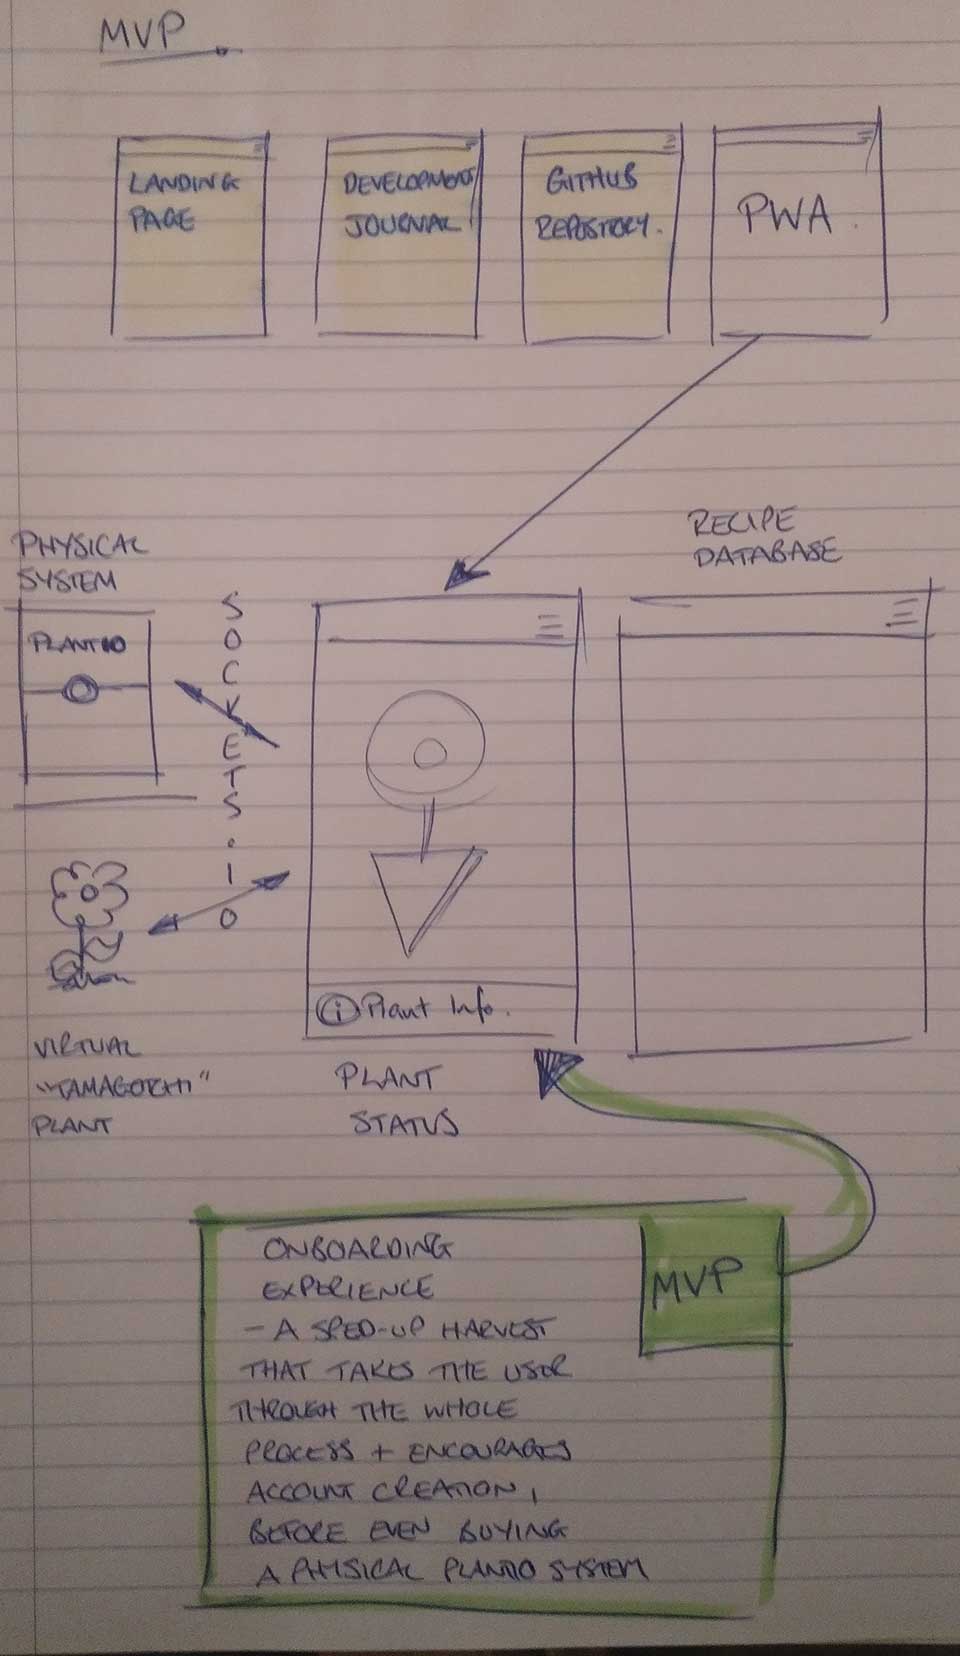 MVP.
LANDING
PAGE
DEVELOPMENT
JOURNAL
GITHUB
REPOSITORY.
PWA.
PHYSICAL
SYSTEM
PLANTIO
SOCKETS.IO
RECIPE
DATABASE
i Plant Info.
VIRTUAL
"TAMAGOTCHI"
PLANT
PLANT
STATUS
MVP
ONBOARDING
EXPERIENCE
- A SPED-UP HARVEST
THAT TAKES THE USER
THROUGH THE WHOLE
PROCESS + ENCOURAGES
ACCOUNT CREATION,
BEFORE EVEN BUYING
A PHYSICAL PLANTIO SYSTEM